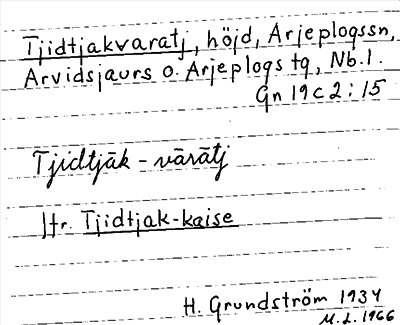 Tjidtjakvaratj, höjd, Arjeplogssn,
Arvidsjaurs o. Arjeplogs tg, Nb.l.
Gn 19 c 2:15
Tjidtjāk-vārātj
Jfr. Tjidtjak-kaise
H. Grundström 1934
M.L. 1966